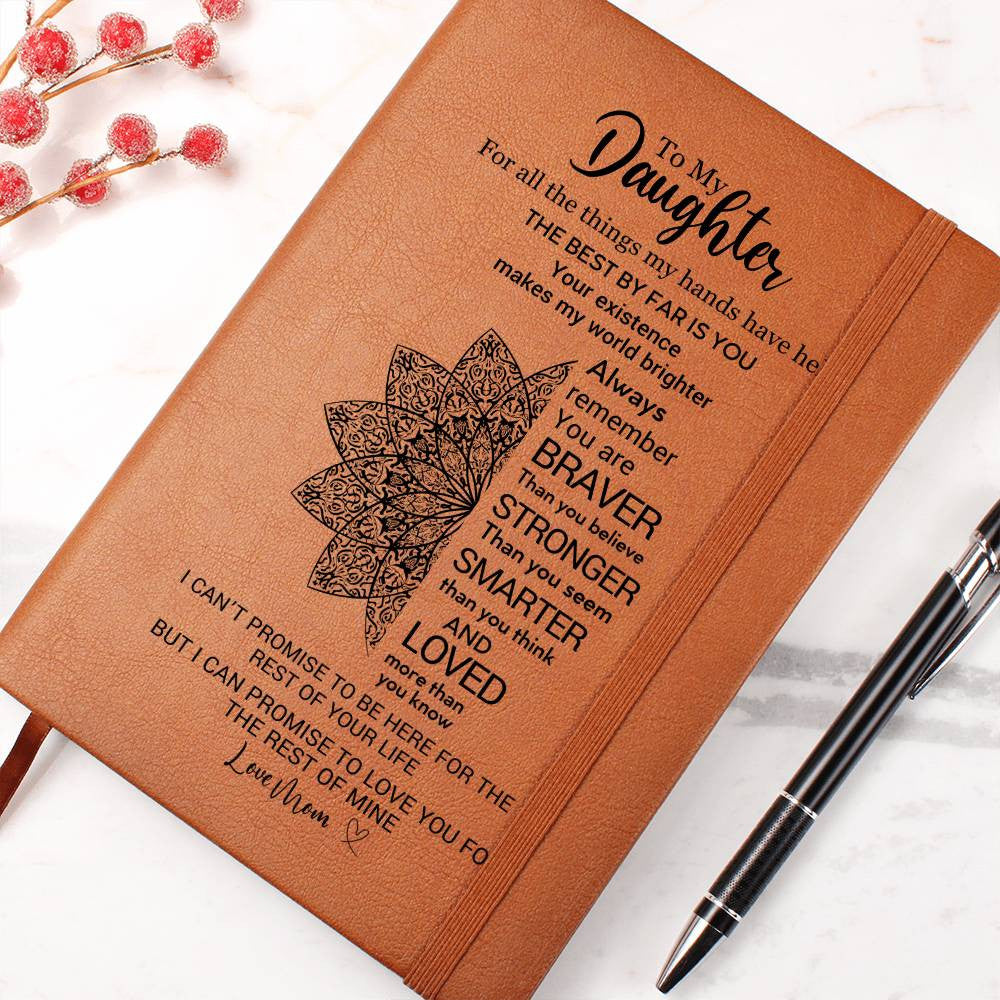 To My
Daughter
For all the things my hands have he
THE BEST BY FAR IS YOU
Your existence
makes my world brighter
Always
remember
You are
BRAVER
Than you believe
STRONGER
Than you seem
SMARTER
than you think
AND
LOVED
more than
you know
I CAN'T PROMISE TO BE HERE FOR THE
REST OF YOUR LIFE
BUT I CAN PROMISE TO LOVE YOU FO
THE REST OF MINE
Love Mom